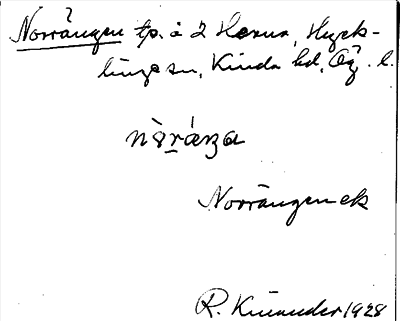 Norrängen tp. å 2 Horva, Hyck-
linge sn, Kinda hd, Ög. l.
nòr̲áŋa
Norrängen ek
R. Kinander 1928